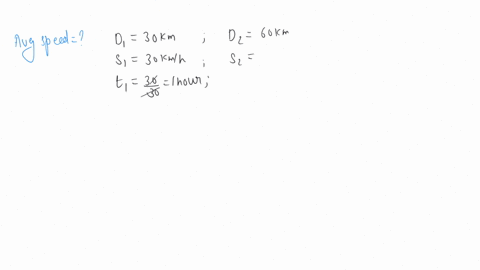 Avg speed=? D₁ = 30 km ; D₂ = 60 km
S₁ = 30 km/h ; S₂ =
t₁ = 30/30 = 1 hour ;